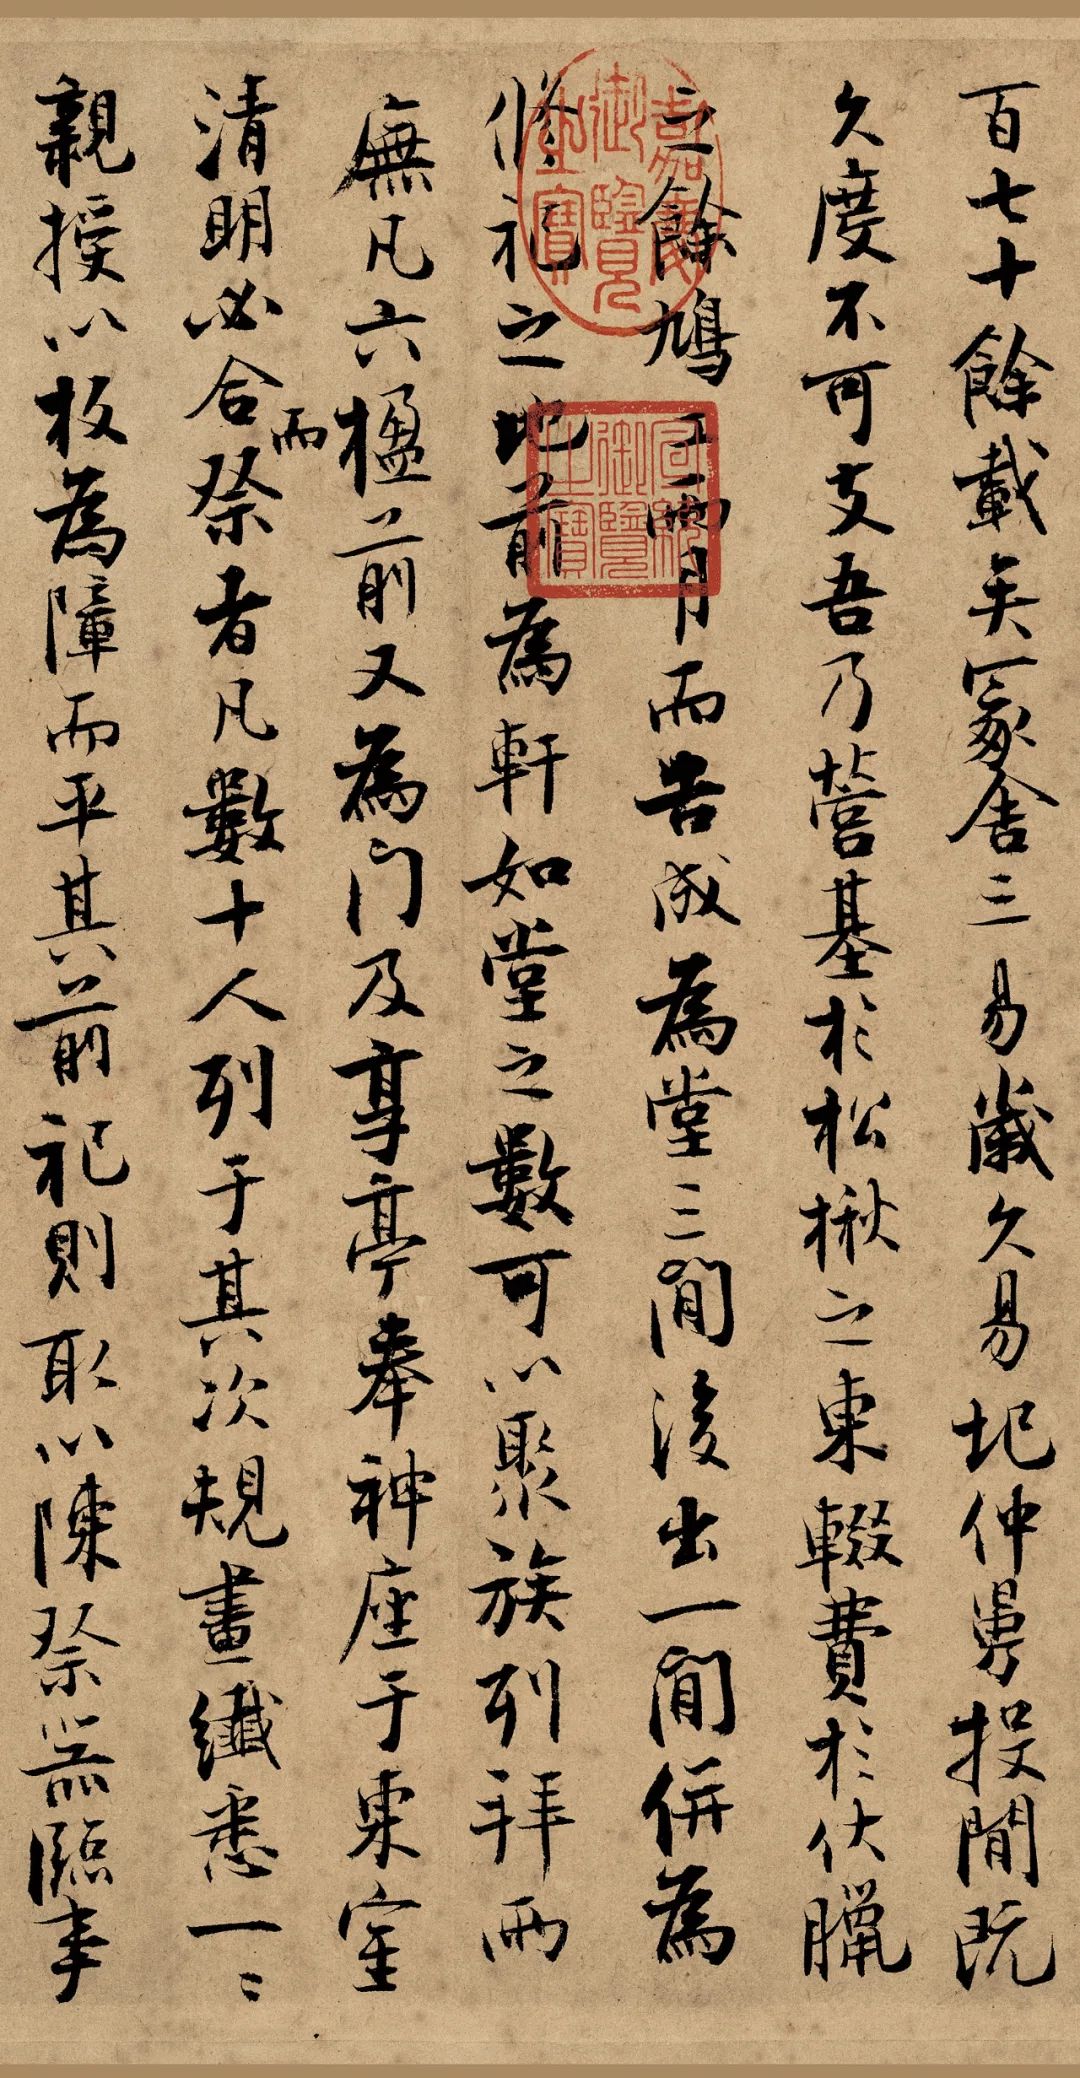 百七十餘載矣冢舍三易歲久易圮仲舅投閒既
久度不可支吾乃營基於松楸之東輟費於伏臘
之餘鳩工兩月而告成為堂三間後出一間併為
脩祀之地前為軒如堂之數可以聚族列拜兩
廡凡六楹前又為門及享亭奉神座于東室
而
清明必合祭者凡數十人列于其次規畫纖悉一〻
親授以板為障而平其前祀則取以陳祭器臨事
嘉慶御覽之寶
宣統御覽之寶